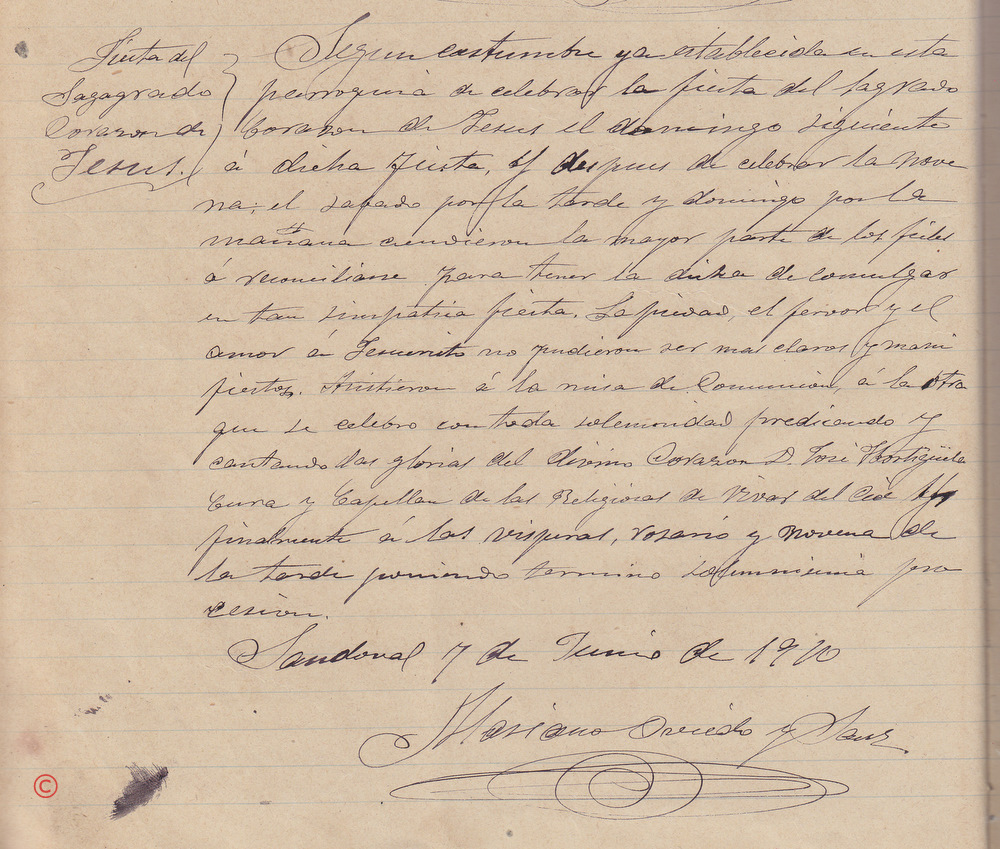 Fiesta del
Sagagrado
Corazon de
Jesus.
Segun costumbre ya establecida en esta
parroquia de celebrar la fiesta del Sagrado
Corazon de Jesus el domingo siguiente
á dicha fiesta, y despues de celebrar la nove
na; el sabado por la tarde y domingo por la
mañana acudieron la mayor parte de los fieles
á reconciliarse para tener la dicha de comulgar
en tan simpatica fiesta. La piedad, el fervor y el
amor á Jesucristo no pudieron ser mas claros y mani
fiestos. Asistieron á la misa de Comunion, á la otra
que se celebro con toda solemnidad predicando y
cantando las glorias del divino Corazon D. José Hortigüela
Cura y Capellan de las Religiosas de Vivar del Cid y
finalmente á las visperas, rosario y novena de
la tarde poniendo termino solemnisima pro
cesion.
Sandoval 7 de Junio de 1910
Mariano Oviedo y Sanz
©